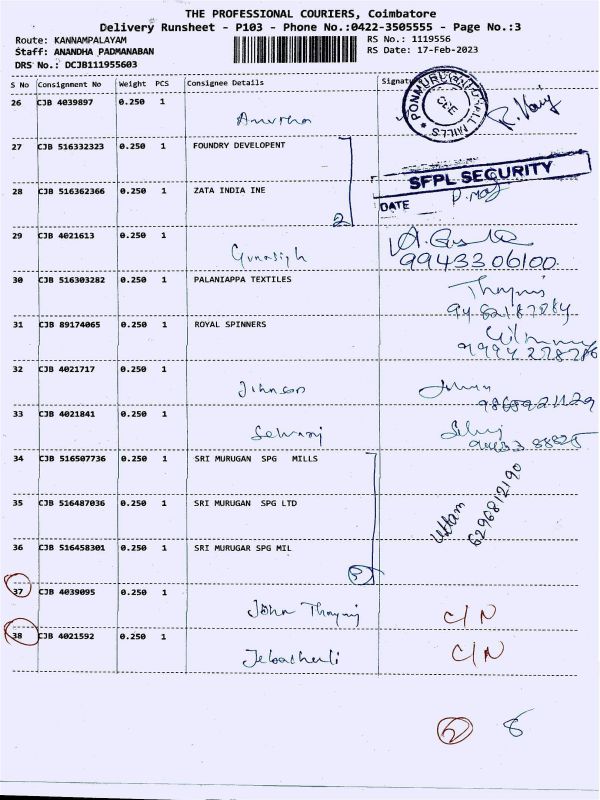 THE PROFESSIONAL COURIERS, Coimbatore
Delivery Runsheet - P103 - Phone No.:0422-3505555 - Page No.:3
Route: KANNAMPALAYAM RS No.: 1119556
Staff: ANANDHA PADMANABAN RS Date: 17-Feb-2023
DRS No.: DCJB111955603
S No Consignment No Weight PCS Consignee Details Signatu
26 CJB 4039897 0.250 1
Anutha
27 CJB 516332323 0.250 1 FOUNDRY DEVELOPENT
SFPL SECURITY
28 CJB 516362366 0.250 1 ZATA INDIA INE
DATE
2
29 CJB 4021613 0.250 1
9943306100
30 CJB 516303282 0.250 1 PALANIAPPA TEXTILES
31 CJB 89174065 0.250 1 ROYAL SPINNERS
32 CJB 4021717 0.250 1
Johnson
33 CJB 4021841 0.250 1
Selvaraj
34 CJB 516507736 0.250 1 SRI MURUGAN SPG MILLS
35 CJB 516487036 0.250 1 SRI MURUGAN SPG LTD
Uttam
6296812190
36 CJB 516458301 0.250 1 SRI MURUGAR SPG MIL
37 CJB 4039095 0.250 1
John C/N
38 CJB 4021592 0.250 1
C/N
8